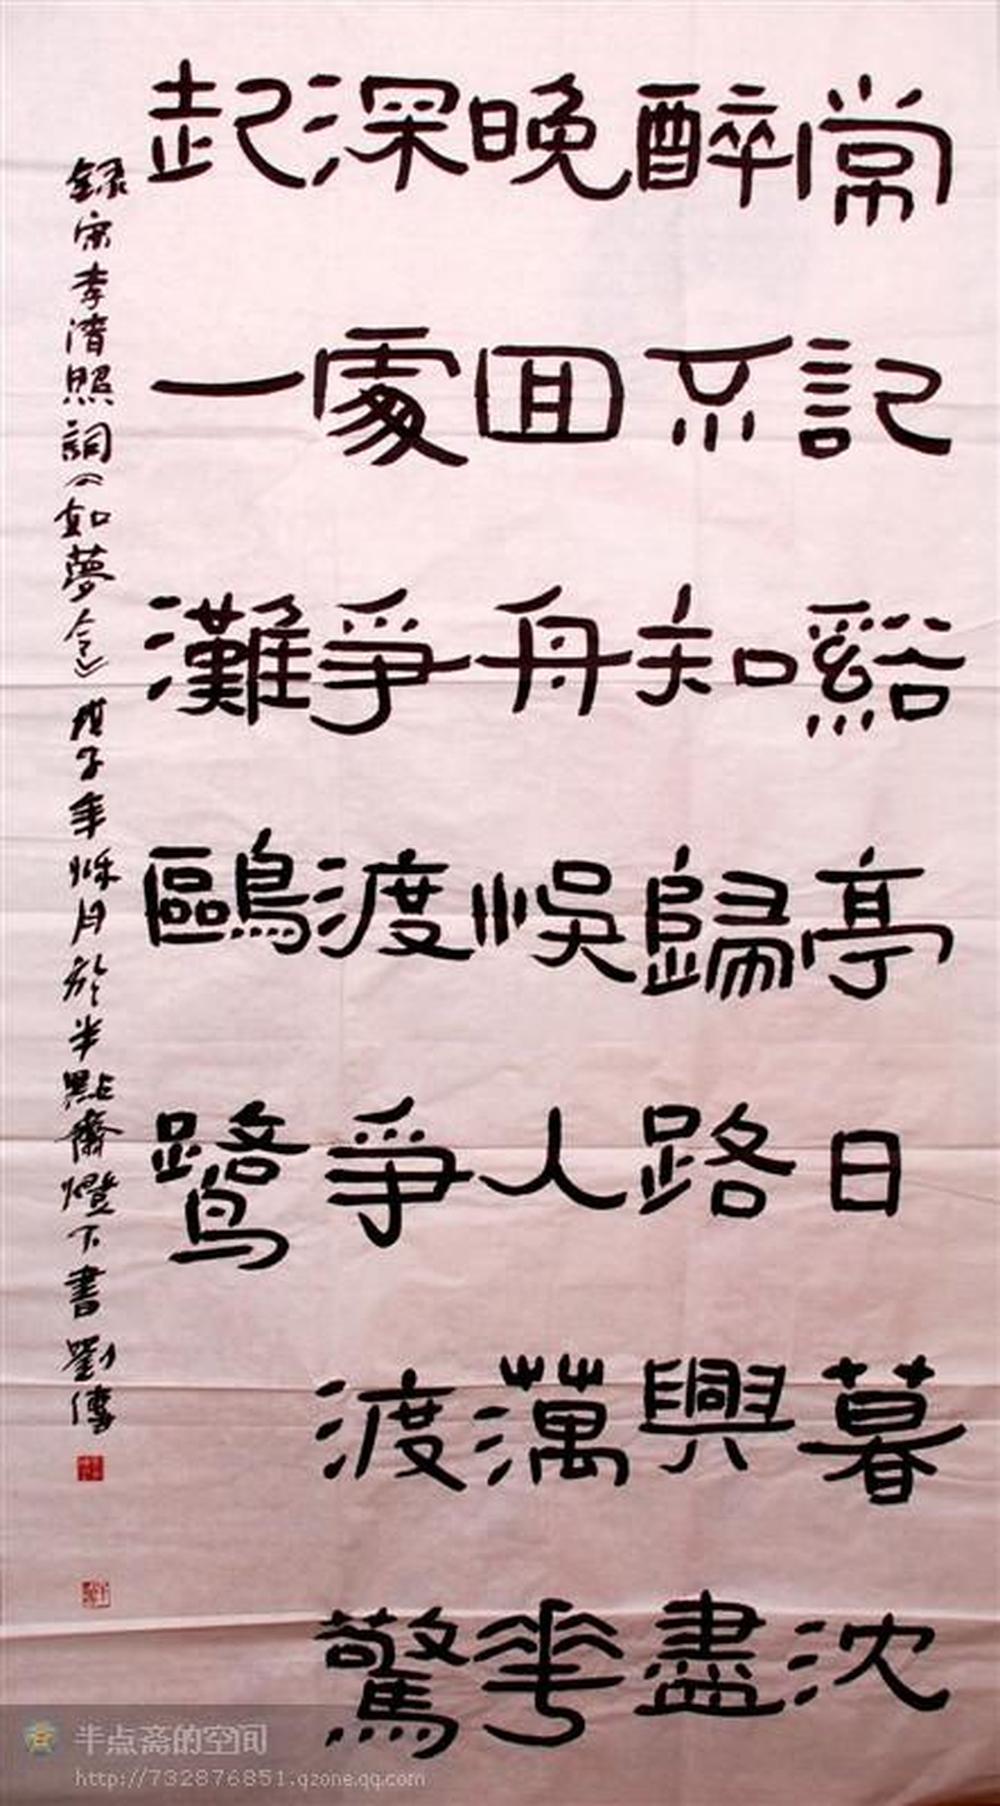 常記谿亭日暮沈
醉不知歸路興盡
晚回舟悞人蕅華
深處爭渡爭渡驚
起一灘鷗鷺
錄宋李清照詞《如夢令》戊子年秋月於半點齋燈下書劉
半点斋的空间
http://732876851.qzone.qq.com